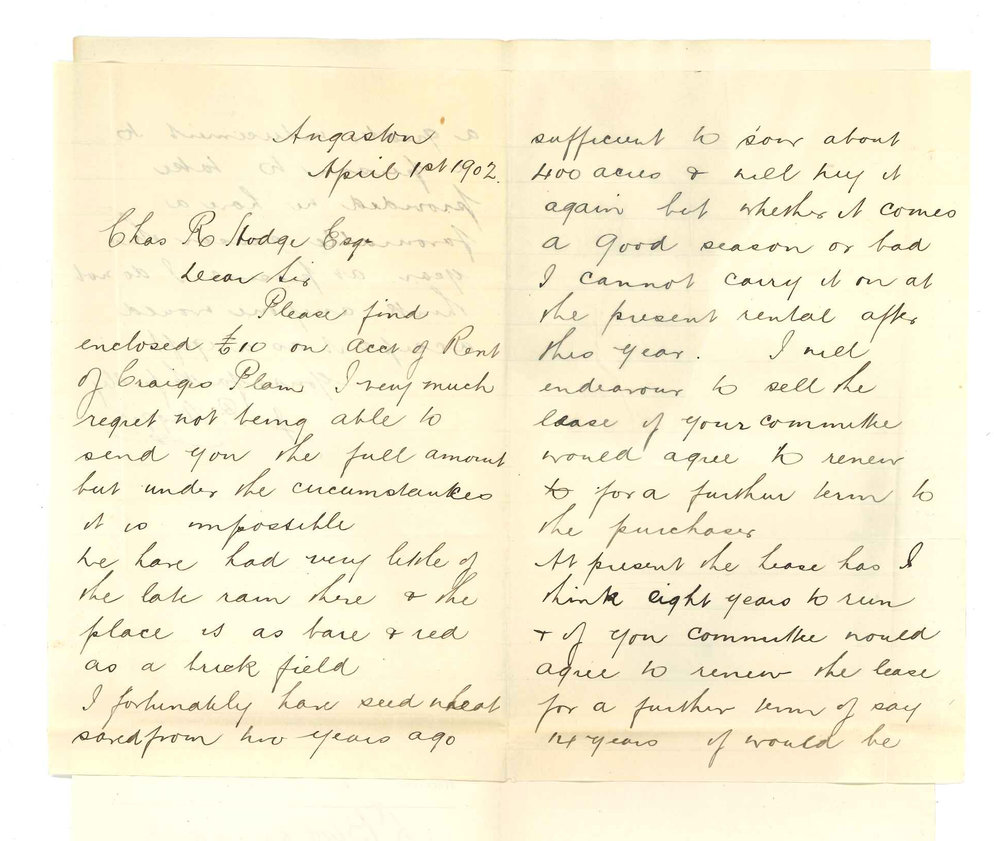 Angaston
April 1st 1902.
Chas R Hodge Esqr
Dear Sir
Please find
enclosed £10 on acct of Rent
of Craigs Plain I very much
regret not being able to
send you the full amount
but under the circumstankes
it is impossible
We have had very little of
the late rain there & the
place is as bare & red
as a brick field
I fortunately have seed wheat
saved from two years ago
sufficient to sow about
400 acres & will try it
again but whether it comes
a good season or bad
I cannot carry it on at
the present rental after
this year. I will
endeavour to sell the
lease if your committee
would agree to renew
to for a further term to
the purchaser
At present the lease has I
think eight years to run
& if you committee would
agree to renew the lease
for a further term of say
14 years if would be